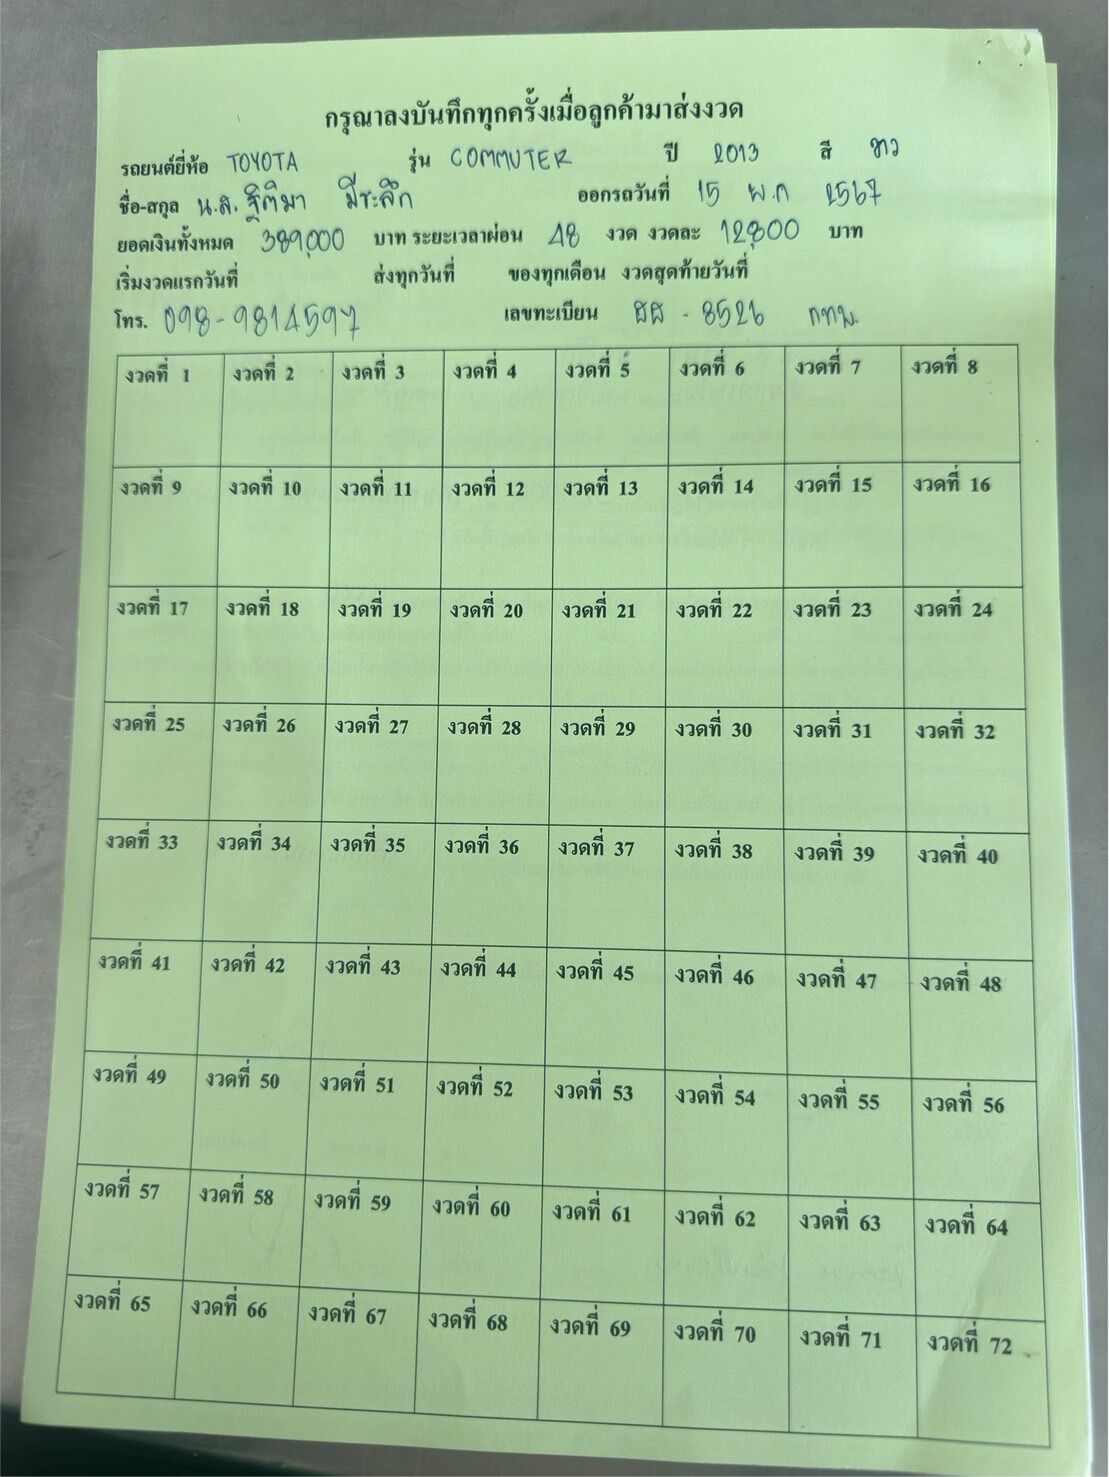 กรุณาลงบันทึกทุกครั้งเมื่อลูกค้ามาส่งงวด
รถยนต์ยี่ห้อ TOYOTA รุ่น COMMUTER ปี 2013 สี ขาว
ชื่อ-สกุล น.ส. ฐิติมา มีระลึก ออกรถวันที่ 15 พ.ค 2567
ยอดเงินทั้งหมด 389,000 บาท ระยะเวลาผ่อน 48 งวด งวดละ 12,800 บาท
เริ่มงวดแรกวันที่ ส่งทุกวันที่ ของทุกเดือน งวดสุดท้ายวันที่
โทร. 098-9814597 เลขทะเบียน - 8526 กทม.
งวดที่ 1 งวดที่ 2 งวดที่ 3 งวดที่ 4 งวดที่ 5 งวดที่ 6 งวดที่ 7 งวดที่ 8
งวดที่ 9 งวดที่ 10 งวดที่ 11 งวดที่ 12 งวดที่ 13 งวดที่ 14 งวดที่ 15 งวดที่ 16
งวดที่ 17 งวดที่ 18 งวดที่ 19 งวดที่ 20 งวดที่ 21 งวดที่ 22 งวดที่ 23 งวดที่ 24
งวดที่ 25 งวดที่ 26 งวดที่ 27 งวดที่ 28 งวดที่ 29 งวดที่ 30 งวดที่ 31 งวดที่ 32
งวดที่ 33 งวดที่ 34 งวดที่ 35 งวดที่ 36 งวดที่ 37 งวดที่ 38 งวดที่ 39 งวดที่ 40
งวดที่ 41 งวดที่ 42 งวดที่ 43 งวดที่ 44 งวดที่ 45 งวดที่ 46 งวดที่ 47 งวดที่ 48
งวดที่ 49 งวดที่ 50 งวดที่ 51 งวดที่ 52 งวดที่ 53 งวดที่ 54 งวดที่ 55 งวดที่ 56
งวดที่ 57 งวดที่ 58 งวดที่ 59 งวดที่ 60 งวดที่ 61 งวดที่ 62 งวดที่ 63 งวดที่ 64
งวดที่ 65 งวดที่ 66 งวดที่ 67 งวดที่ 68 งวดที่ 69 งวดที่ 70 งวดที่ 71 งวดที่ 72